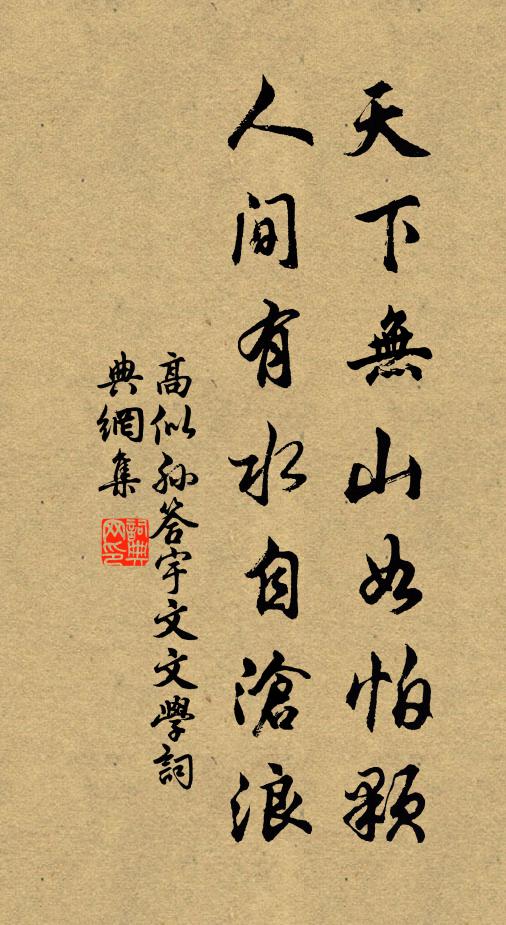 天下無山如怕顆
人間有水自滄浪
高似孫答宇文文學詞
典網集
詞典
网印